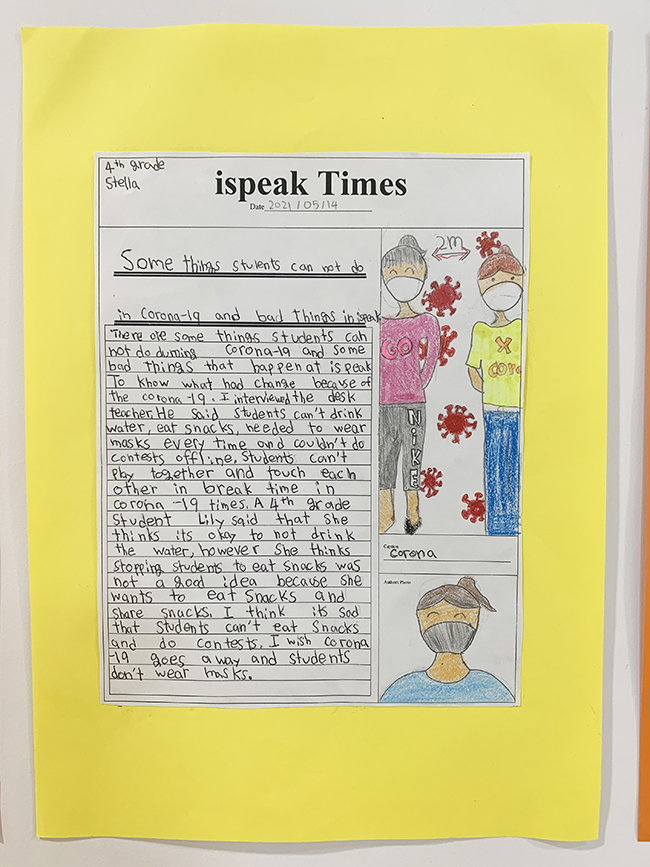 4th grade
Stella
ispeak Times
Date 2021/05/14
Some things students can not do
in Corona-19 and bad things in ispeak
There are some things students can
not do durning Corona-19 and some
bad things that happen at ispeak
To know what had change because of
the corona-19. I interviewed the desk
teacher. He said students can't drink
water, eat snacks, needed to wear
masks every time and couldn't do
contests offline. Students can't
play together and touch each
other in break time in
corona-19 times. A 4th grade
student Lily said that she
thinks its okay to not drink
the water, however she thinks
stopping students to eat snacks was
not a good idea because she
wants to eat snacks and
share snacks. I think its sad
that students can't eat snacks
and do contests. I wish corona
-19 goes away and students
don't wear masks.
2m
GO
NIKE
X
coro
Caption
Corona
Authors Photo